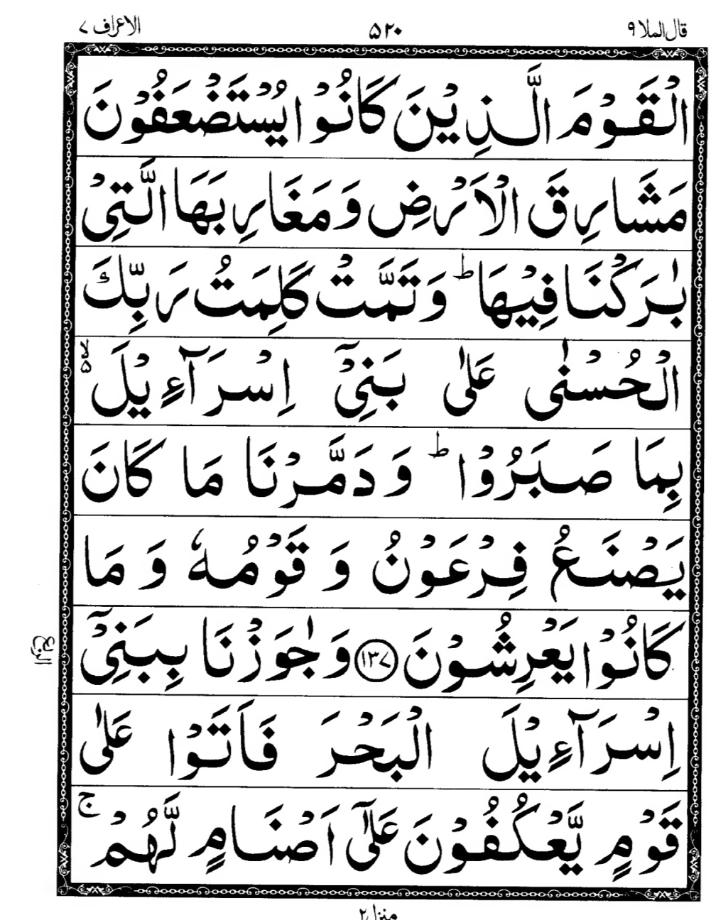 قال الملا ٩ ۵۲۰ الاعراف ٧
الْقَوْمَ الَّذِيْنَ كَانُوْا يُسْتَضْعَفُوْنَ
مَشَارِقَ الْاَرْضِ وَمَغَارِبَهَا الَّتِيْ
بٰرَكْنَا فِيْهَا ؕ وَتَمَّتْ كَلِمَتُ رَبِّكَ
الْحُسْنٰى عَلٰى بَنِيْۤ اِسْرَآءِيْلَ ۙ۵
بِمَا صَبَرُوْا ؕ وَدَمَّرْنَا مَا كَانَ
يَصْنَعُ فِرْعَوْنُ وَ قَوْمُهٗ وَ مَا
كَانُوْا يَعْرِشُوْنَ ﴿۱۳۷﴾ وَجٰوَزْنَا بِبَنِيْۤ
الربع
اِسْرَآءِيْلَ الْبَحْرَ فَاَتَوْا عَلٰى
قَوْمٍ يَّعْكُفُوْنَ عَلٰۤى اَصْنَامٍ لَّهُمْ ۚ
منزل ۲